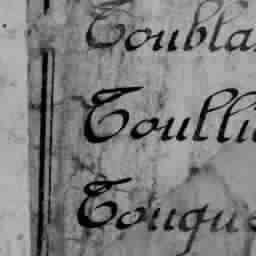 Toubla
Toulli
Touqu